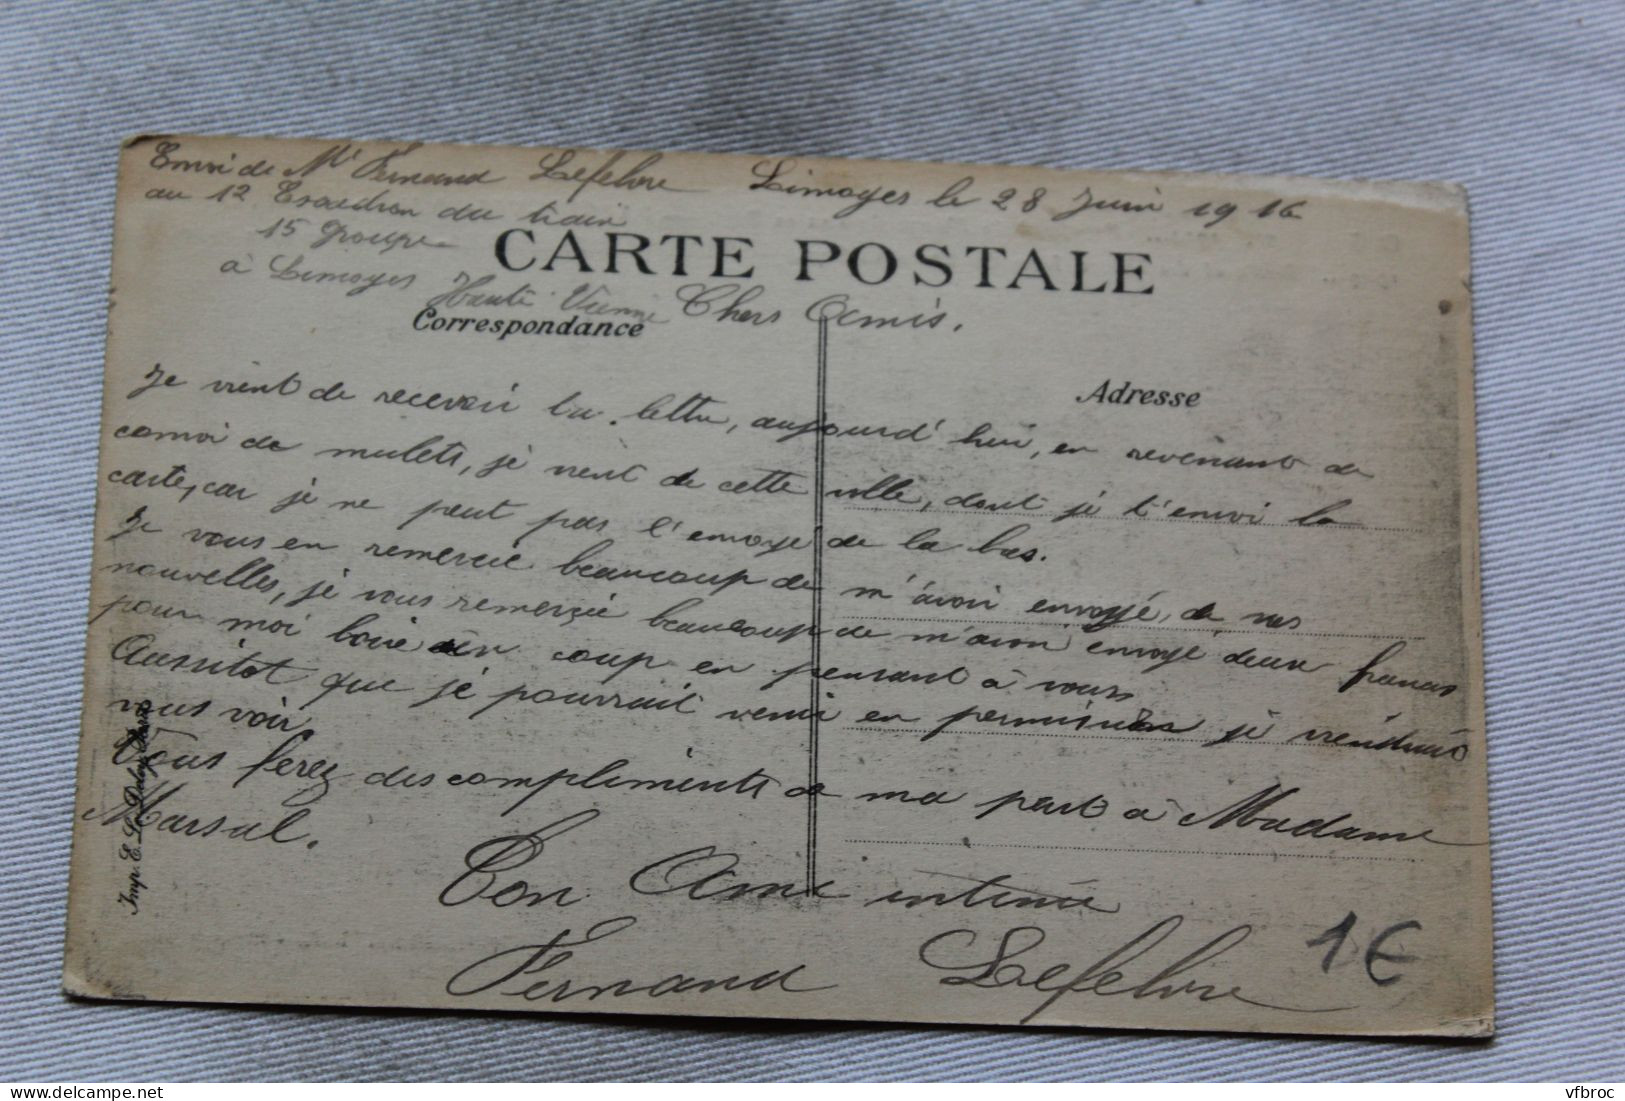 Envoi de Mr Fernand Lefebvre Limoges le 28 Juin 1916
au 12 Escadron du train
15 groupe
CARTE POSTALE
à Limoges Haute Vienne Chers Amis.
Correspondance
Adresse
Je vient de recevoir ta lettre, aujourd'hui, en revenant de
convoi de mulets, je vient de cette ville, dont je t'envoi la
carte, car je ne peut pas l'envoyé de la bas.
Je vous en remercie beaucoup de m'avoir envoyé, de vos
nouvelles, je vous remerçie beaucoup de m'avoir envoyé deux francs
pour moi boire un coup en pensant à vous
Aussitot que je pourrait venir en permission je viendrais
vous voir
Vous ferez des compliments de ma part à Madame
Marsal.
Ton Ami intime
Fernand Lefebvre
1€
Imp. E. Le Deley, Paris
vfbroc